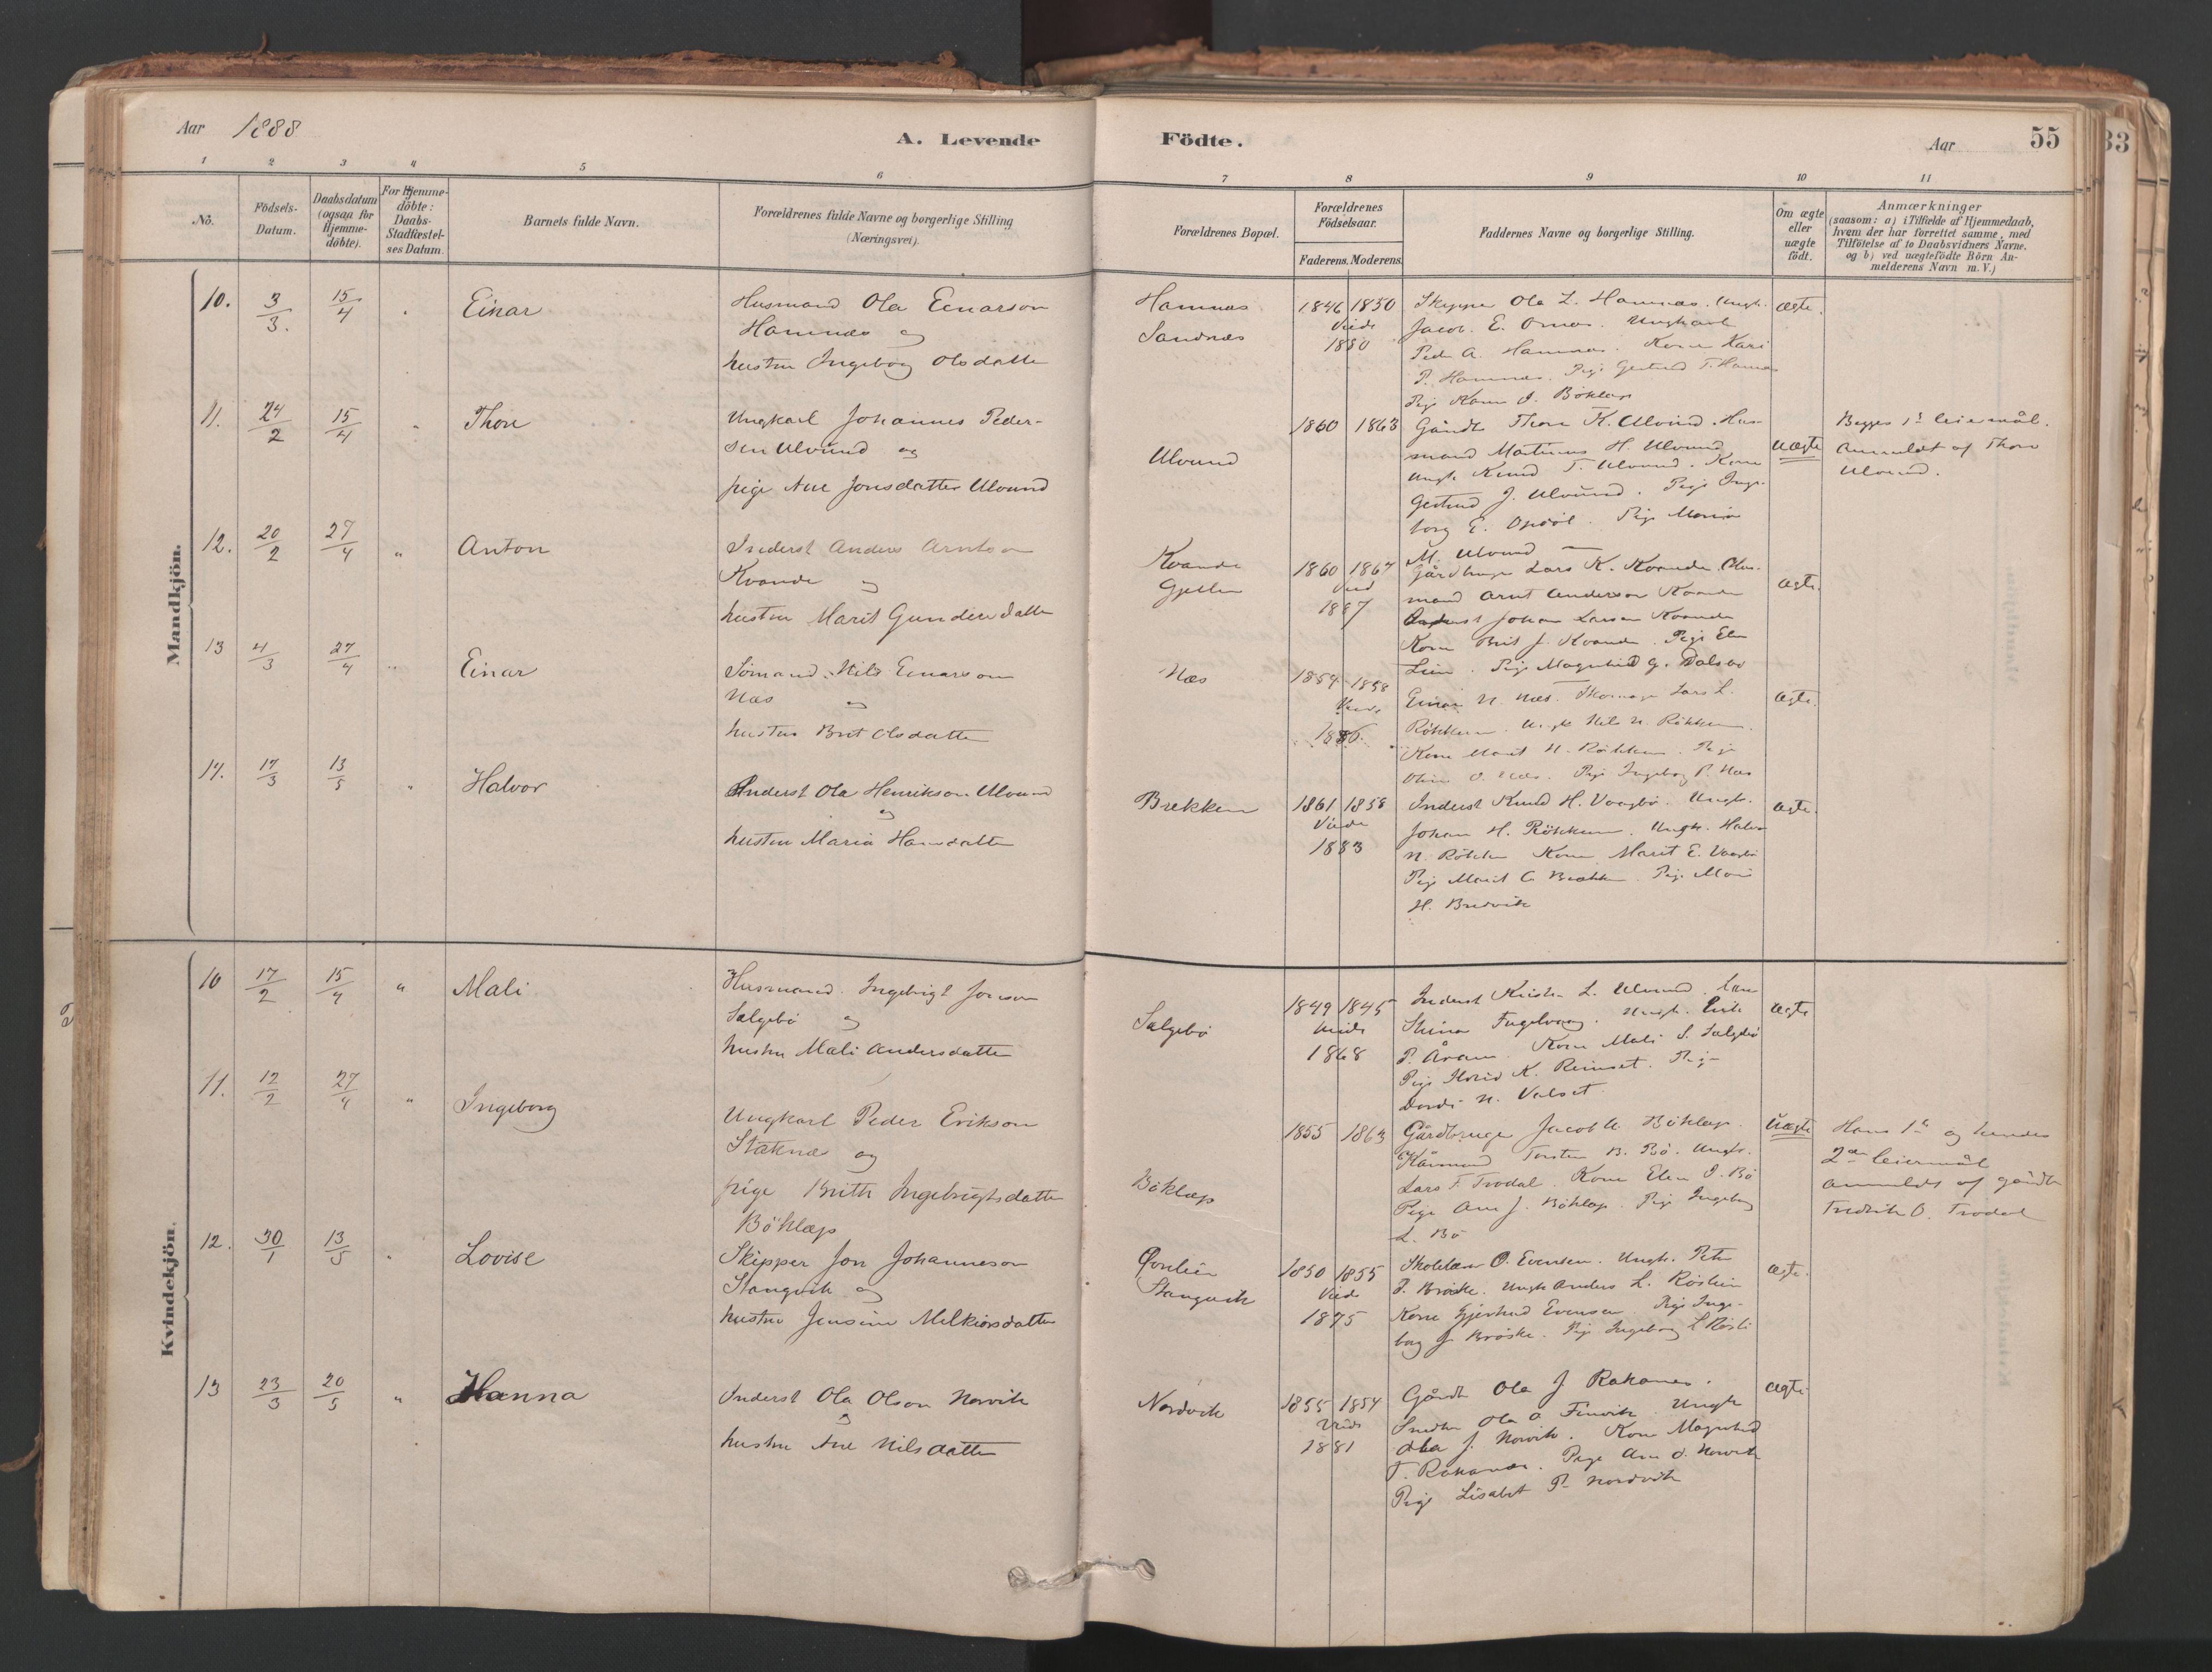 Aar 1888
A. Levende
Födte.
Aar
55
33
1 2 3 4 5 6 7 8 9 10 11
No.
Födsels-
Datum.
Daabsdatum
(ogsaa for
Hjemme-
döbte).
For Hjemme-
döbte:
Daabs-
Stadfæstel-
ses Datum.
Barnets fulde Navn.
Forældrenes fulde Navne og borgerlige Stilling
(Næringsvei).
Forældrenes Bopæl.
Forældrenes
Födselsaar.
Faderens. Moderens.
Faddernes Navne og borgerlige Stilling.
Om ægte
eller
uægte
födt.
Anmærkninger
(saasom: a) i Tilfælde af Hjemmedaab,
hvem der har forrettet samme, med
Tilföielse af to Daabsvidners Navne,
og b) ved uægtefödte Börn An-
melderens Navn m. V.)
Mandkjön.
10. 3/3. 15/4 Einar
Husmand Ola Einarson
Hamnæs og
hustru Ingeborg Olsdatter
Hamnæs
Sandnæs
1846 1850
Viede
1850
Skipper Ola L. Hamnæs. Ungk.
Jacob E. Ornæs. Ungkarl
Peder A. Hamnæs. Kone Kari
P. Hamnæs. Pige Gertrud T. Hamnæs
Pige Karen J. Böklap
ægte.
11. 24/2 15/4 " Thore
Ungkarl Johannes Peder-
sen Ulvund og
pige Ane Jonsdatter Ulvund
Ulvund
1860 1863
Gårdb. Thore K. Ulvund. Hus-
mand Mathias H. Ulvund
Ungk. Knud T. Ulvund. Kone
Gertrud J. Ulvund. Pige Inge-
borg E. Opdöl. Pige Maria
M. Ulvund
uægte
Begges 1s leiermål.
Anmeldt af Thore
Ulvund.
12. 20/2 27/4 " Anton
Inderst Anders Arntson
Kvande og
hustru Marit Gundersdatter
Kvande
Gjellen
1860 1867
Vied
1887
Gårdbruger Lars K. Kvande. Hus-
mand Arnt Anderson Kvande
Inderst Johan Larson Kvande
Kone Brit J. Kvande. Pige Elen
Lien. Pige Magnhild G. Dalsbö
ægte.
13 4/3 27/4 " Einar
Sömand Nils Einarson
Næs og
hustru Brit Olsdatter
Næs
1854 1858
Viede
1886.
Einar N. Næs. Skomager Lars L.
Røkkum. Ungk. Nils N. Røkkum.
Kone Marit N. Røkkum. Pige
Oline O. Næs. Pige Ingeborg P. Næs
ægte.
14. 17/3 13/5 " Halvor
Inderst Ola Henrikson Ulvund
og
hustru Maria Hansdatter
Brækken
1861 1858
Viede
1883
Inderst Knud H. Vaagbö. Ungk.
Johan H. Røkkum. Ungk. Halvor
N. Røkkum Kone Marit E. Vaagbö
Pige Marit O. Brækken. Pige Mari
H. Bredvik
ægte.
Kvindekjön.
10 17/2 15/4 " Mali
Husmand Ingebrigt Jonson
Salgebö og
hustru Mali Andersdatter
Salgebö
1849 1845
Viede
1868
Inderst Kristen L. Ulvund.
Stina Fugelvaag. Ungk. Erik
P. Åram. Kone Mali S. Salgebö
Pige Hold K. Reinset. Pige
Dordi N. Valset
ægte
11. 12/2 27/4 " Ingeborg
Ungkarl Peder Erikson
Staknæs og
pige Brith Ingebrigtsdatter
Böklap
Böklap
1855 1863
Gårdbruger Jacob A. Böklap.
Kårmand Torsten B. Bö. Ungk.
Lars F. Trodal. Kone Elen O. Bö
Pige Ane J. Böklap. Pige Ingeborg
L. Bö
uægte
Hans 1ste og hendes
2det leiermål
anmeldt af gårdb.
Fredrik O. Trodal
12. 30/1 13/5 " Lovise
Skipper Jon Johanneson
Stangvik og
hustru Jensine Melkiorsdatter
Qvenlien
Stangvik
1850 1855
Viede
1875
Skolelærer O. Evensen. Ungk. Peter
P. Bröske. Ungk. Anders L. Röslien
Kone Gjertrud Evensen. Pige Inge-
borg J. Bröske. Pige Ingeborg L. Rösli
ægte.
13 23/3 20/5 " Hanna
Inderst Ola Olson Norvik
og
hustru Ane Nilsdatter
Nordvik
1855 1854
Viede
1881
Gårdb. Ola J. Rakanes.
Snedker Ola O. Finvik. Ungk.
Ola J. Norvik. Kone Magnhild
T. Rakanes. Pige Ane O. Norvik
Pige Lisabet P. Nordvik
ægte